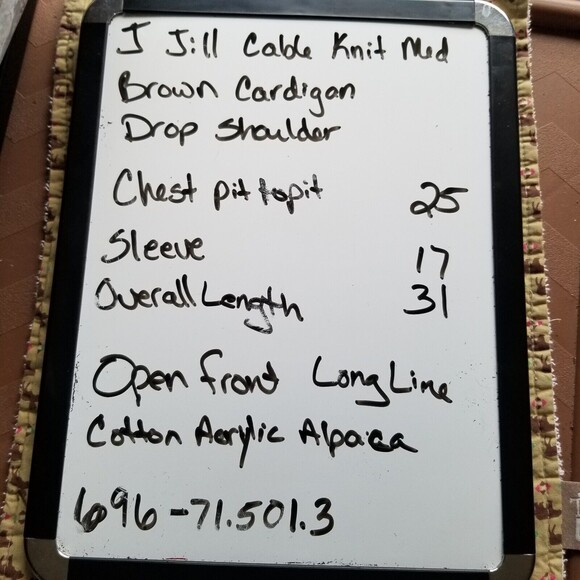 J Jill Cable Knit Med
Brown Cardigan
Drop Shoulder
Chest pit to pit 25
Sleeve 17
Overall Length 31
Open front Long Line
Cotton Acrylic Alpaca
696-71.501.3